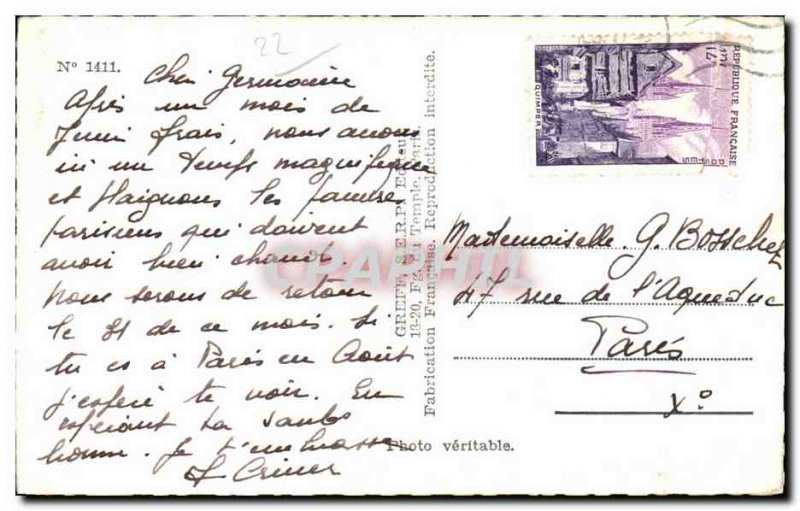 22
N° 1411.
Cher Germaine
Après un mois de
Juin frais, nous avons
ici un temps magnifique
et plaignons les
parisiens qui doivent
avoir bien chaud.
Nous serons de retour
le 31 de ce mois. Si
tu es à Paris en Août
j'espère te voir. En
espérant ta santé
bonne. Je t'embrasse
GREFF, S.E.R.P. Editeur
18-20, Fg. du Temple, Paris.
Fabrication Française. Reproduction interdite.
Photo véritable.
REPUBLIQUE FRANÇAISE
POSTES
QUIMPER
Mademoiselle. G. Bosschez
47 rue de l'Aqueduc
Paris
Xº
CPAPHIL